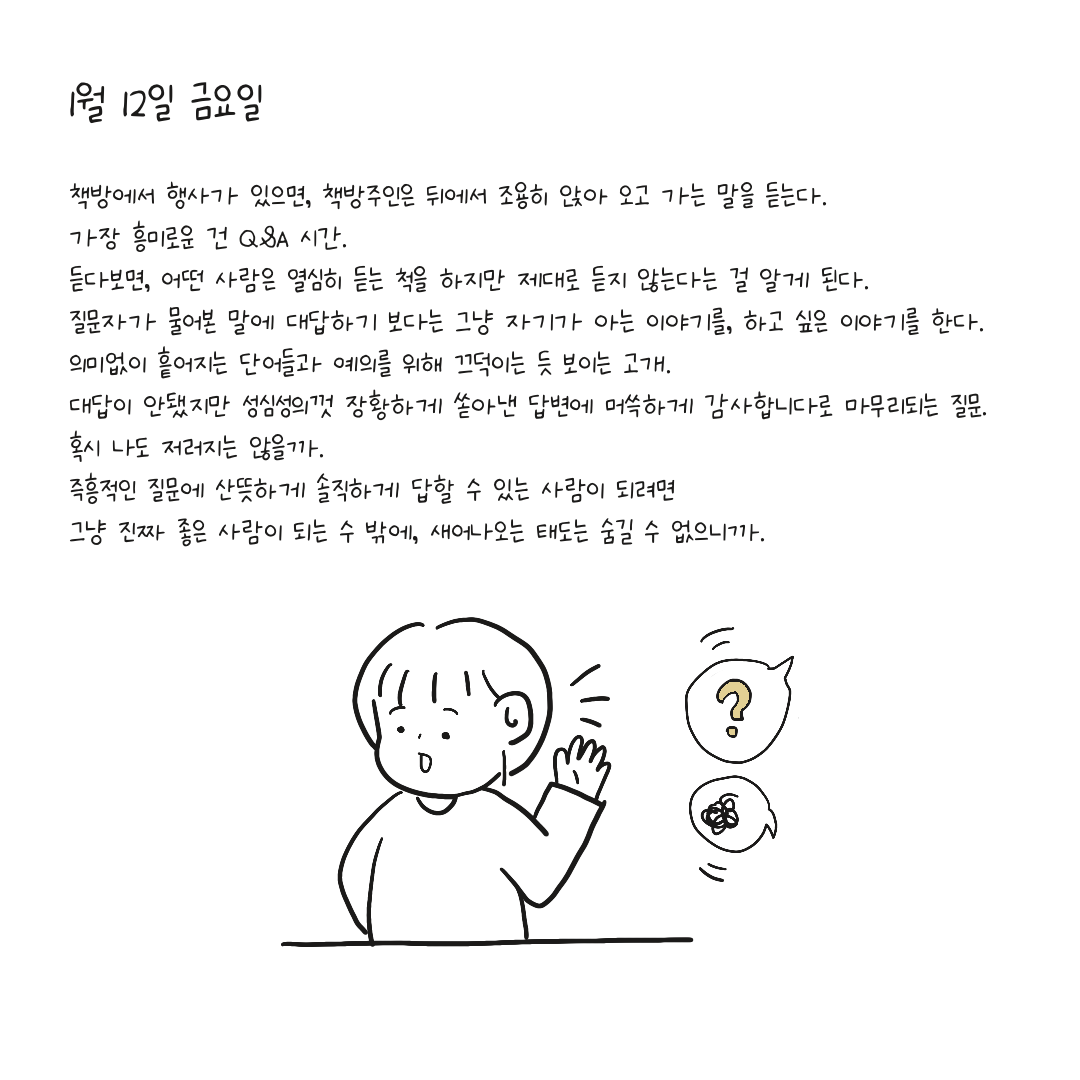 1월 12일 금요일
책방에서 행사가 있으면, 책방주인은 뒤에서 조용히 앉아 오고 가는 말을 듣는다.
가장 흥미로운 건 Q&A 시간.
듣다보면, 어떤 사람은 열심히 듣는 척을 하지만 제대로 듣지 않는다는 걸 알게 된다.
질문자가 물어본 말에 대답하기 보다는 그냥 자기가 아는 이야기를, 하고 싶은 이야기를 한다.
의미없이 흩어지는 단어들과 예의를 위해 끄덕이는 듯 보이는 고개.
대답이 안됐지만 성심성의껏 장황하게 쏟아낸 답변에 머쓱하게 감사합니다로 마무리되는 질문.
혹시 나도 저러지는 않을까.
즉흥적인 질문에 산뜻하게 솔직하게 답할 수 있는 사람이 되려면
그냥 진짜 좋은 사람이 되는 수 밖에, 새어나오는 태도는 숨길 수 없으니까.
?